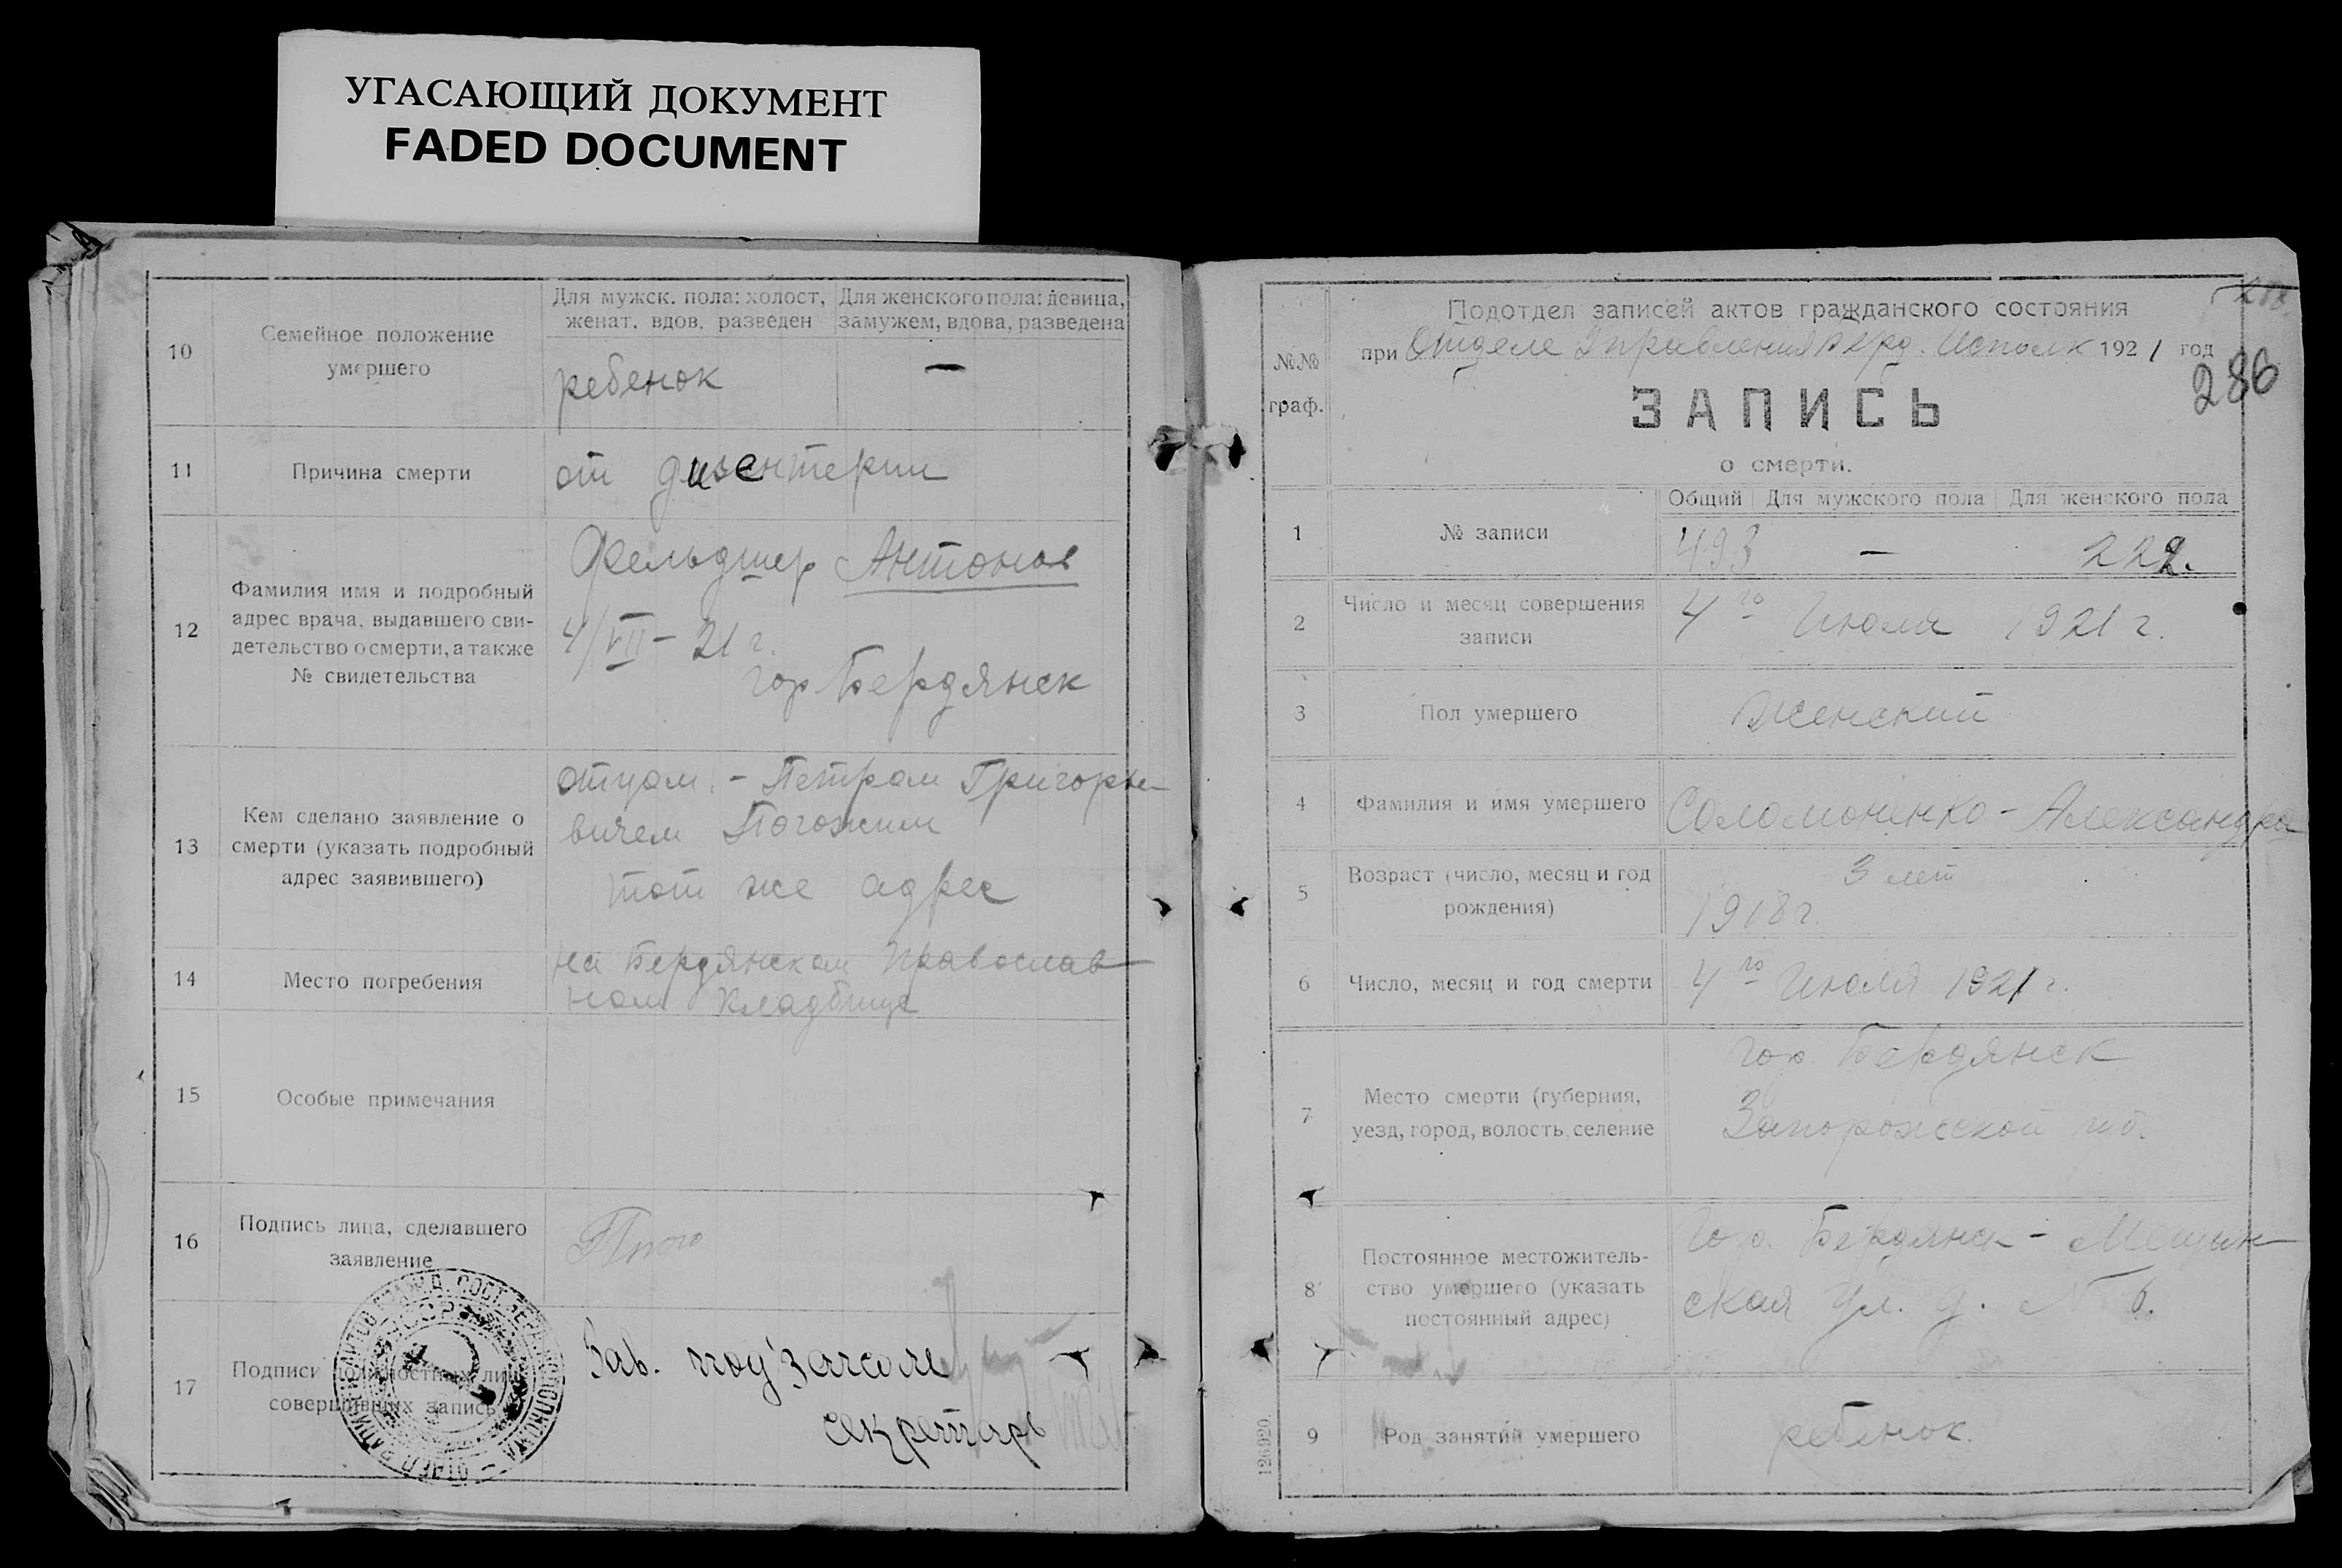 УГАСАЮЩИЙ ДОКУМЕНТ
FADED DOCUMENT
10
Семейное положение
умершего
Для мужск. пола: холост,
женат. вдов. разведен
Для женского пола: девица,
замужем, вдова, разведена
ребенок
—
11
Причина смерти
от дизентерии
12
Фамилия имя и подробный
адрес врача, выдавшего сви-
детельство о смерти, а также
№ свидетельства
Фельдшер Антонов
4/VII – 21 г.
гор Бердянск
13
Кем сделано заявление о
смерти (указать подробный
адрес заявившего)
отцом. – Петром Григорье-
вичем Погожим
тот же адрес
14
Место погребения
на Бердянском Православ-
ном кладбище
15
Особые примечания
16
Подпись лица, сделавшего
заявление
17
Подписи должностных лиц
совершивших запись
Зав. под'загсом
секретарь
№№
граф.
Подотдел записей актов гражданского состояния
при Отделе Управления Берд. Исполк 1921 год
286
ЗАПИСЬ
о смерти.
Общий
Для мужского пола
Для женского пола
1
№ записи
493
—
222.
2
Число и месяц совершения
записи
4го Июля 1921 г.
3
Пол умершего
Женский
4
Фамилия и имя умершего
Соломоненко - Александра
5
Возраст (число, месяц и год
рождения)
3 лет
1918 г.
6
Число, месяц и год смерти
4го Июля 1921 г.
7
Место смерти (губерния,
уезд, город, волость, селение
гор. Бердянск
Запорожской губ.
8
Постоянное местожитель-
ство умершего (указать
постоянный адрес)
Гор. Бердянск - Мещан-
ская ул. д. № 6.
9
Род занятий умершего
ребенок.
126920.